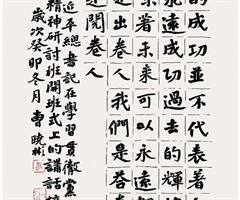 的成功並不代表
永遠成功過去的輝
表著未來可以永遠
是出卷人我們是答卷
是閱卷人
近平總書記在學習貫徹黨
精神研討班開班式上的講話
歲次癸卯冬月曹曉彬